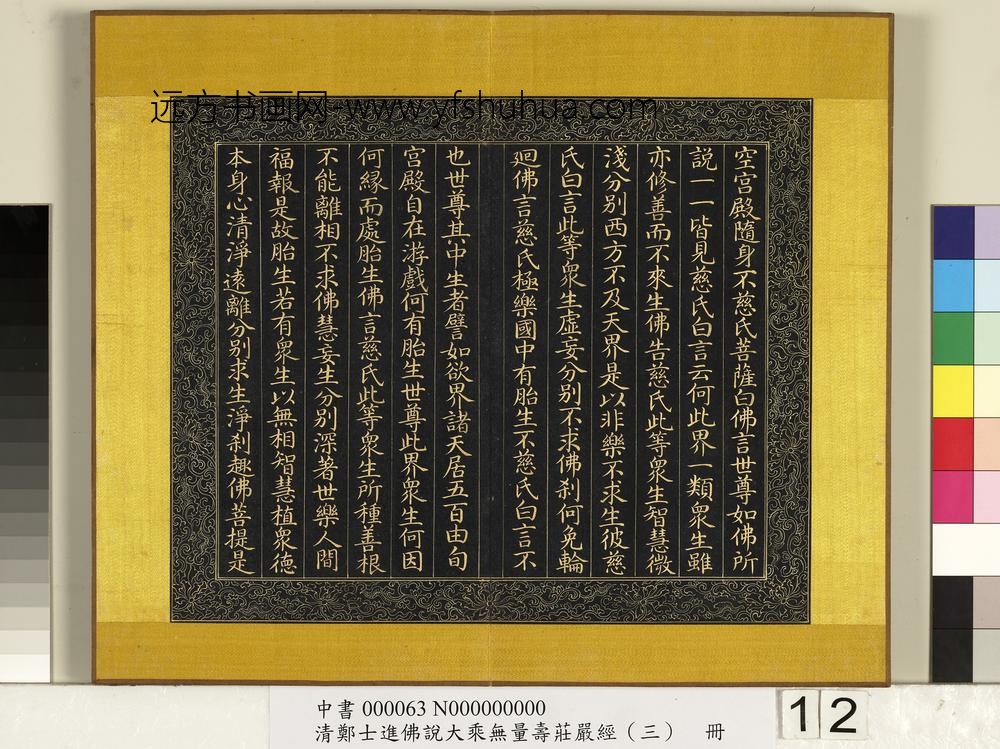 远方书画网-www.yfshuhua.com
空宮殿隨身不慈氏菩薩白佛言世尊如佛所
說一一皆見慈氏白言云何此界一類眾生雖
亦修善而不來生佛告慈氏此等眾生智慧微
淺分別西方不及天界是以非樂不求生彼慈
氏白言此等眾生虛妄分別不求佛剎何免輪
廻佛言慈氏極樂國中有胎生不慈氏白言不
也世尊其中生者譬如欲界諸天居五百由旬
宮殿自在游戲何有胎生世尊此界眾生何因
何緣而處胎生佛言慈氏此等眾生所種善根
不能離相不求佛慧妄生分別深著世樂人間
福報是故胎生若有眾生以無相智慧植眾德
本身心清淨遠離分別求生淨剎趣佛菩提是
中書 000063 N000000000
清鄭士進佛說大乘無量壽莊嚴經（三） 冊
12